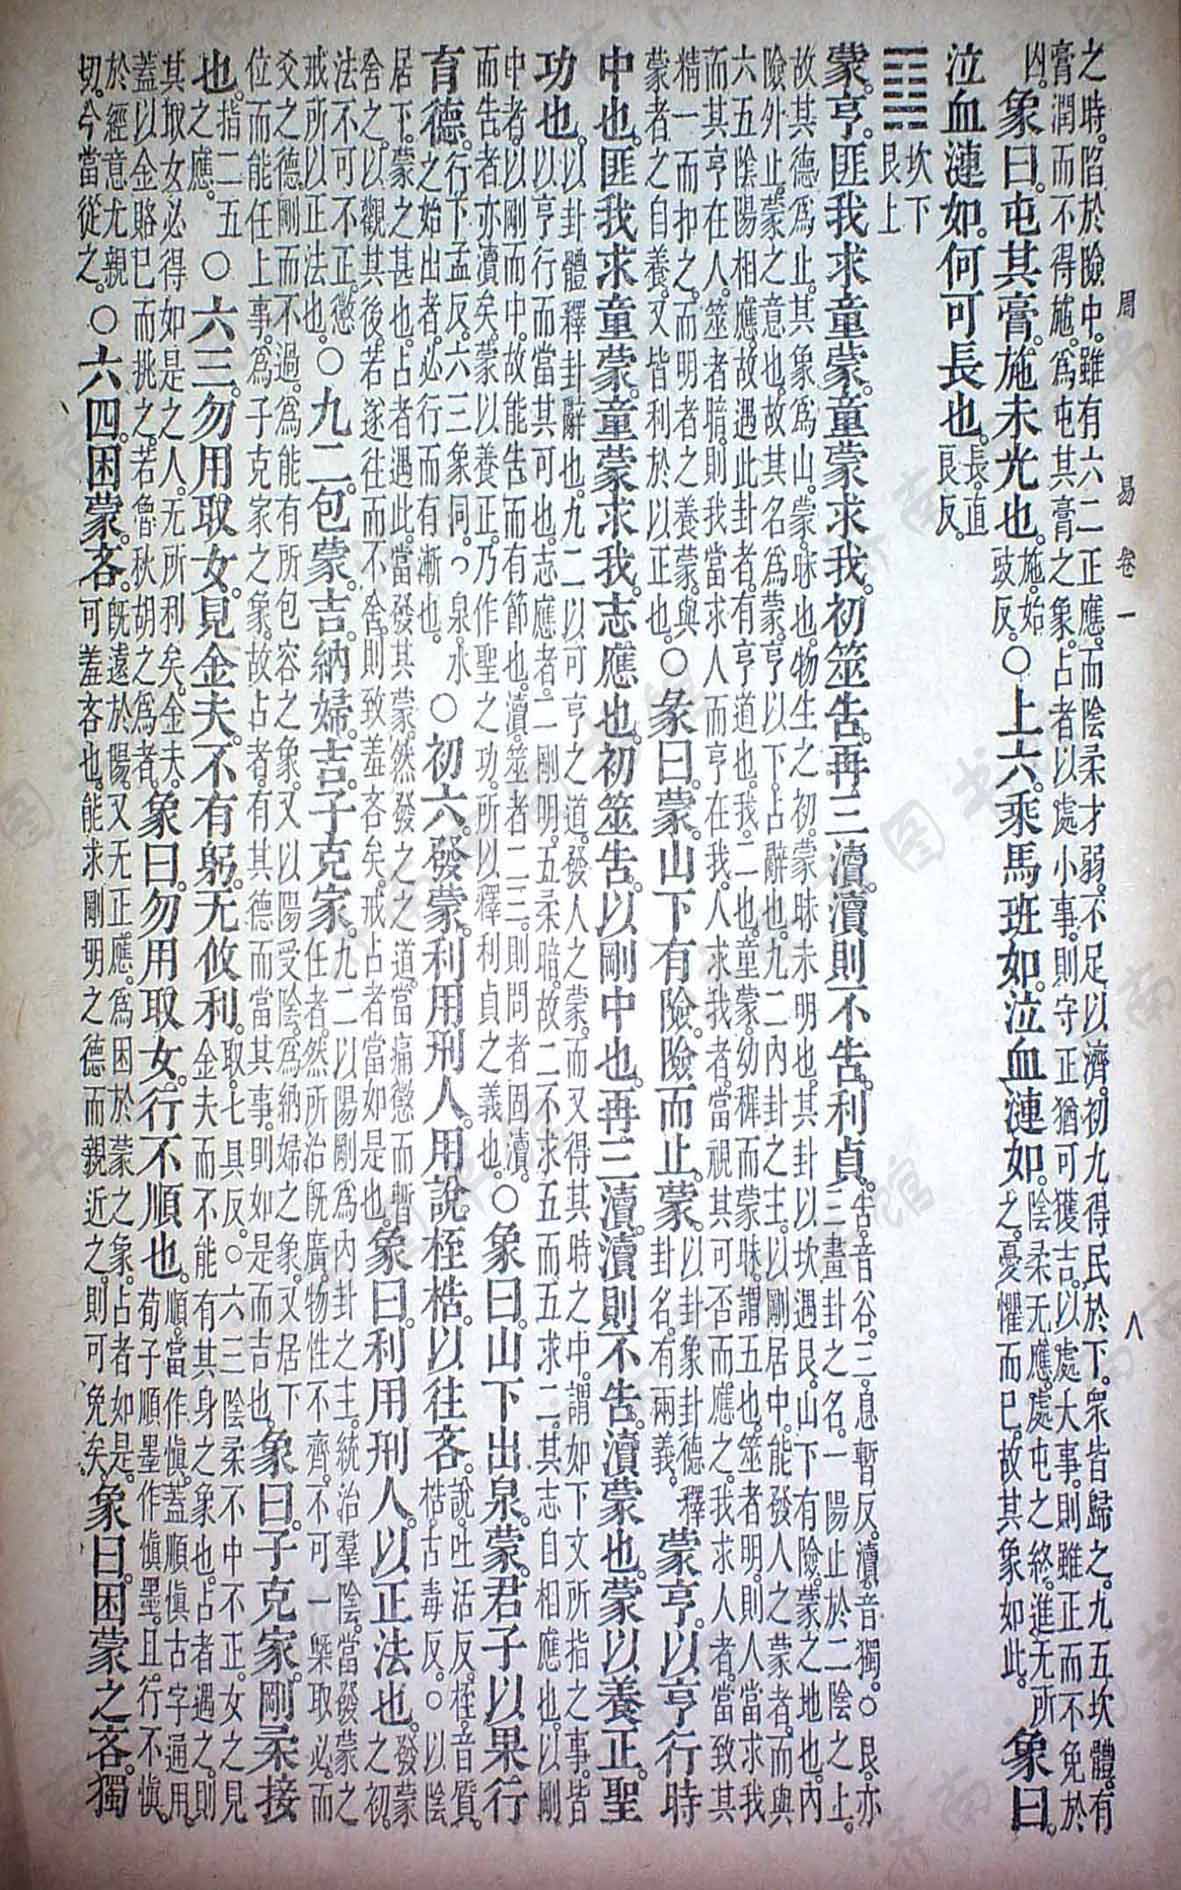 周易 卷一 八
之時。陷於險中。雖有六二正應。而陰柔才弱。不足以濟。初九得民於下。眾皆歸之。九五坎體。有
膏潤而不得施。為屯其膏之象。占者以處小事。則守正猶可獲吉。以處大事。則雖正而不免於
凶。象曰。屯其膏。施未光也。施。始豉反。○上六。乘馬班如。泣血漣如。陰柔无應。處屯之終。進无所之。憂懼而已。故其象如此。象曰。
泣血漣如。何可長也。長。直良反。
䷃坎下艮上
蒙。亨。匪我求童蒙。童蒙求我。初筮告。再三瀆。瀆則不告。利貞。告。音谷。三。息暫反。瀆。音獨。○艮。亦三畫卦之名。一陽止於二陰之上。
故其德為止。其象為山。蒙。昧也。物生之初。蒙昧未明也。其卦以坎遇艮。山下有險。蒙之地也。內
險外止。蒙之意也。故其名為蒙。亨以下。占辭也。九二內卦之主。以剛居中。能發人之蒙者。而與
六五陰陽相應。故遇此卦者。有亨道也。我。二也。童蒙。幼穉而蒙昧。謂五也。筮者明。則人當求我
而其亨在人。筮者暗。則我當求人而亨在我。人求我者。當視其可否而應之。我求人者。當致其
精一而扣之。而明者之養蒙。與蒙者之自養。又皆利於以正也。○彖曰。蒙。山下有險。險而止。蒙。以卦象卦德釋卦名。有兩義。蒙亨。以亨行時
中也。匪我求童蒙。童蒙求我。志應也。初筮告。以剛中也。再三瀆。瀆則不告。瀆蒙也。蒙以養正。聖
功也。以卦體釋卦辭也。九二以可亨之道。發人之蒙。而又得其時之中。謂如下文所指之事。皆以亨行而當其可也。志應者。二剛明。五柔暗。故二不求五而五求二。其志自相應也。以剛
中者。以剛而中。故能告而有節也。瀆。筮者二三。則問者固瀆。而告者亦瀆矣。蒙以養正。乃作聖之功。所以釋利貞之義也。○象曰。山下出泉。蒙。君子以果行
育德。行。下孟反。六三象同。○泉。水之始出者。必行而有漸也。○初六。發蒙。利用刑人。用說桎梏。以往吝。說。吐活反。桎。音質。梏。古毒反。○以陰
居下。蒙之甚也。占者遇此。當發其蒙。然發之之道。當痛懲而暫舍之。以觀其後。若遂往而不舍。則致羞吝矣。戒占者當如是也。象曰。利用刑人。以正法也。發蒙之初。
法不可不正。懲戒所以正法也。○九二。包蒙。吉。納婦。吉。子克家。九二以陽剛為內卦之主。統治羣陰。當發蒙之任者。然所治既廣。物性不齊。不可一槩取必。而
爻之德剛而不過。為能有所包容之象。又以陽受陰。為納婦之象。又居下位而能任上事。為子克家之象。故占者有其德而當其事。則如是而吉也。象曰。子克家。剛柔接
也。指二五之應。○六三。勿用取女。見金夫。不有躬。无攸利。取。七具反。○六三陰柔不中不正。女之見金夫而不能有其身之象也。占者遇之。則
其取女必得如是之人。无所利矣。金夫。蓋以金賂己而挑之。若魯秋胡之為者。象曰。勿用取女。行不順也。順。當作慎。蓋順慎古字通用。荀子順墨作慎墨。且行不慎。
於經意尤親切。今當從之。○六四。困蒙。吝。既遠於陽。又无正應。為困於蒙之象。占者如是。可羞吝也。能求剛明之德而親近之。則可免矣。象曰。困蒙之吝。獨